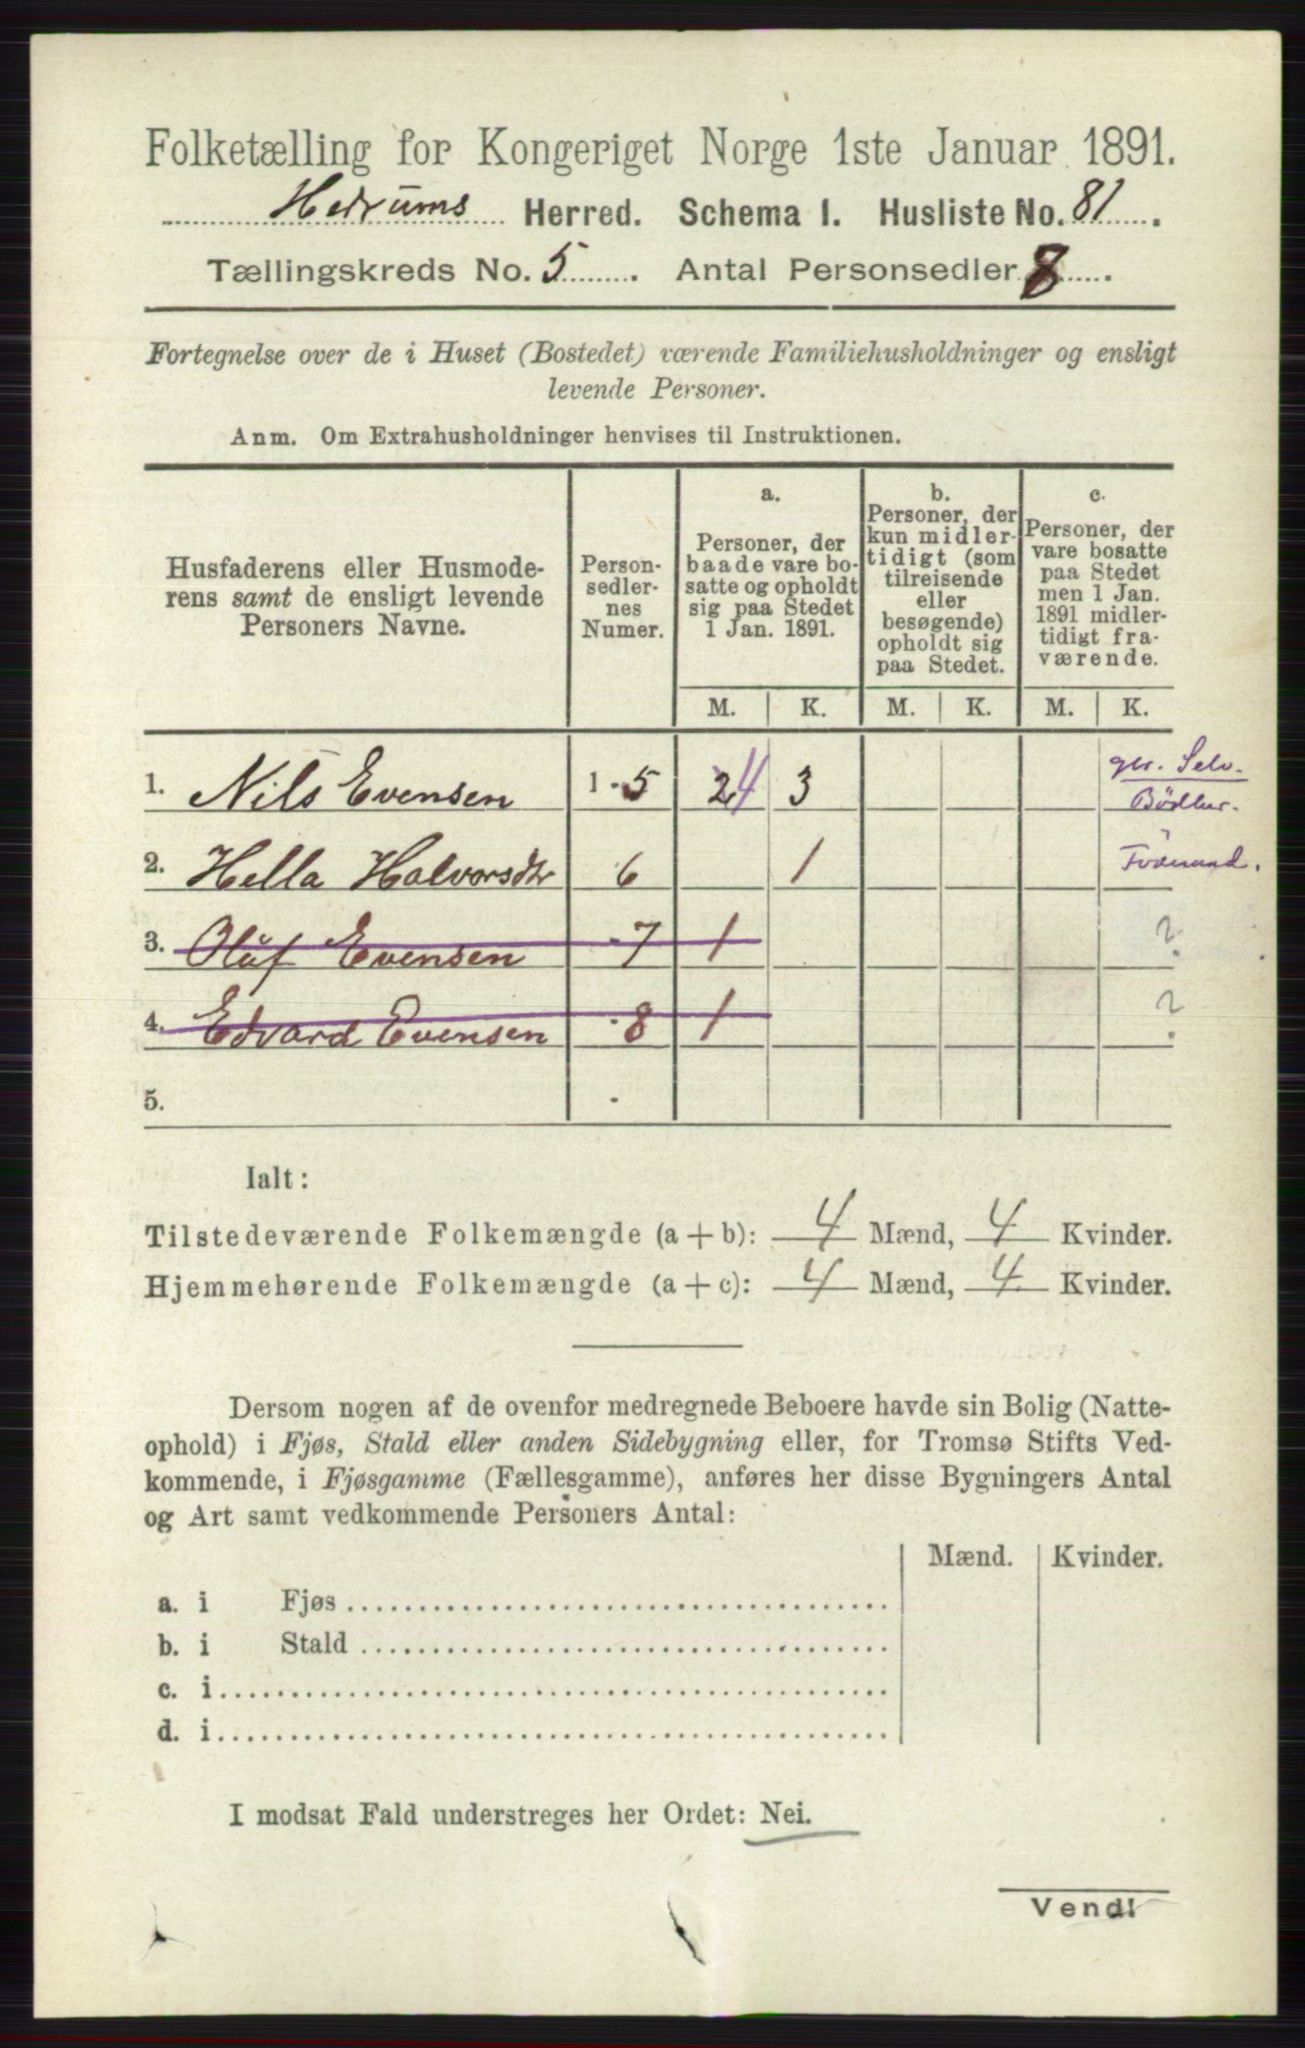 Folketælling for Kongeriget Norge 1ste Januar 1891.
Hedrums Herred. Schema I. Husliste No. 81.
Tællingskreds No. 5. Antal Personsedler 8.
Fortegnelse over de i Huset (Bostedet) værende Familiehusholdninger og ensligt
levende Personer.
Anm. Om Extrahusholdninger henvises til Instruktionen.
Husfaderens eller Husmode-
rens samt de ensligt levende
Personers Navne.
Person-
sedler-
nes
Numer.
a.
Personer, der
baade vare bo-
satte og opholdt
sig paa Stedet
1 Jan. 1891.
b.
Personer, der
kun midler-
tidigt (som
tilreisende
eller
besøgende)
opholdt sig
paa Stedet.
c.
Personer, der
vare bosatte
paa Stedet
men 1 Jan.
1891 midler-
tidigt fra-
værende.
M. K. M. K. M. K.
1. Nils Evensen 1 - 5 2 4 3 Selv.
2. Hella Halvorsdtr 6 1
3. Oluf Evensen - 7 1 ?
4. Edvard Evensen - 8 1 ?
5. -
Ialt:
Tilstedeværende Folkemængde (a + b): 4 Mænd, 4 Kvinder.
Hjemmehørende Folkemængde (a + c): 4 Mænd, 4 Kvinder.
Dersom nogen af de ovenfor medregnede Beboere havde sin Bolig (Natte-
ophold) i Fjøs, Stald eller anden Sidebygning eller, for Tromsø Stifts Ved-
kommende, i Fjøsgamme (Fællesgamme), anføres her disse Bygningers Antal
og Art samt vedkommende Personers Antal:
Mænd. Kvinder.
a. i Fjøs
b. i Stald
c. i
d. i
I modsat Fald understreges her Ordet: Nei.
Vend!